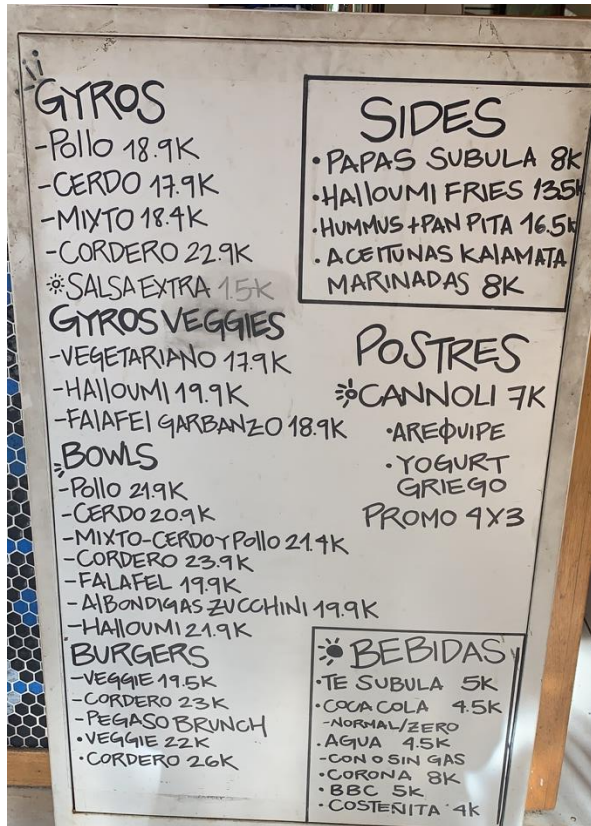 GYROS
-Pollo 18.9K
-CERDO 17.9K
-MIXTO 18.4K
-CORDERO 22.9K
SALSA EXTRA 1.5K
GYROS VEGGIES
-VEGETARIANO 17.9K
-HALLOUMI 19.9K
-FALAFEL GARBANZO 18.9K
BOWLS
-Pollo 21.9K
-CERDO 20.9K
-MIXTO-CERDO Y Pollo 21.4K
-CORDERO 23.9K
-FALAFEL 19.9K
-ALBONDIGAS ZUCCHINI 19.9K
-HALLOUMI 21.9K
BURGERS
-VEGGIE 19.5K
-CORDERO 23K
-PEGASO BRUNCH
·VEGGIE 22K
·CORDERO 26K
SIDES
·PAPAS SUBULA 8K
·HALLOUMI FRIES 13.5K
·HUMMUS+PAN PITA 16.5K
·ACEITUNAS KALAMATA
MARINADAS 8K
POSTRES
CANNOLI 7K
·AREQUIPE
·YOGURT
GRIEGO
PROMO 4X3
BEBIDAS
·TE SUBULA 5K
·COCA COLA 4.5K
-NORMAL/ZERO
·AGUA 4.5K
-CON O SIN GAS
·CORONA 8K
·BBC 5K
·COSTEÑITA 4K